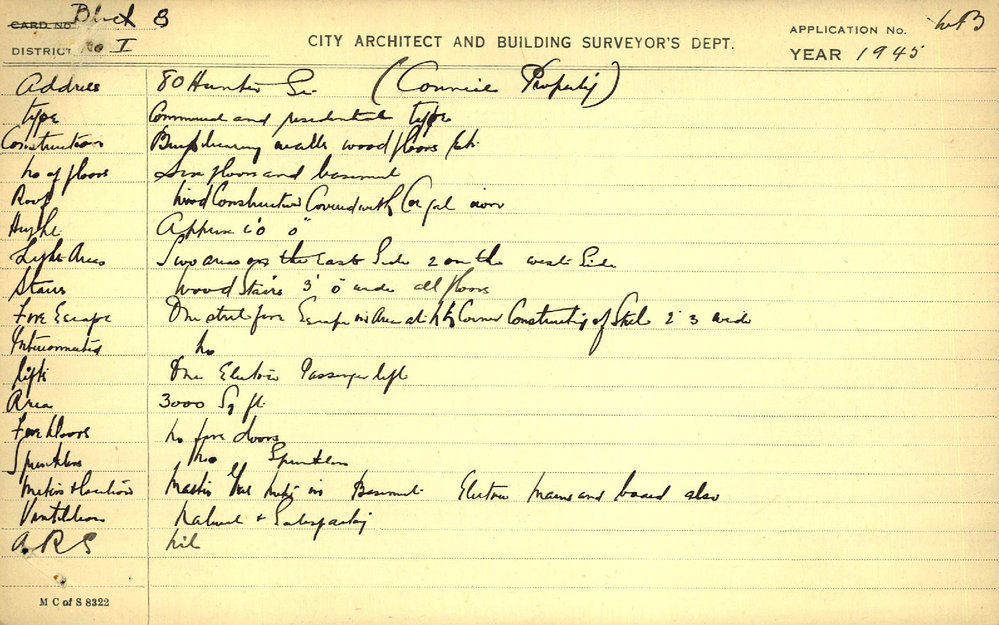 CARD NO. Block 8
DISTRICT No I
CITY ARCHITECT AND BUILDING SURVEYOR'S DEPT.
APPLICATION No.
YEAR 1945
Address 80 Hunter St. (Council Property)
Type Commercial and residential type
Construction walls wood floors
No of floors Six floors and basement
Roof Wood Construction Covered with Cor gal iron
Height Approx
Light Areas Two areas on the East Side 2 on the west Side
Stairs Wood Stairs 3' 0" wide all floors
Fire Escape One steel fire Escape in Area at Corner Constructing of Steel 2' 3 wide
Interconnected No
Lifts One Electric Passenger lift
Area 3000 Sq ft.
Fire Doors No fire doors
Sprinklers No Sprinklers
Meters & location Gas in Basement. Electric mains and board also
Ventilation Natural & Satisfactory
A.R.S Nil
M C of S 8322